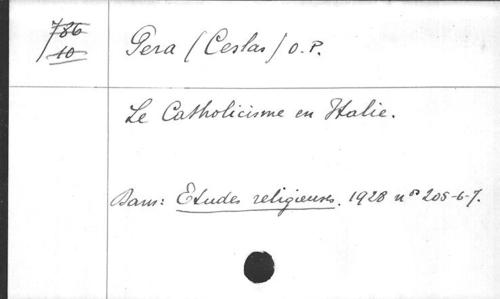 786
10
Pera (Ceslas) O.P.
Le Catholicisme en Italie.
Dans: Etudes religieuses. 1928 nos 205-6-7.